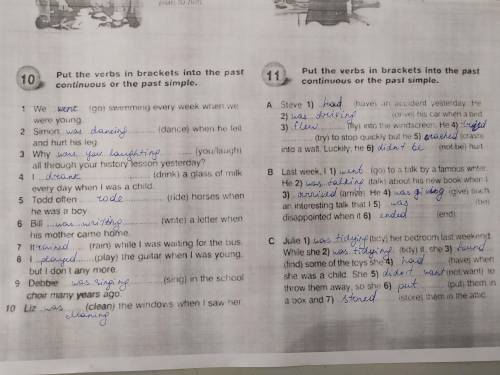 10 Put the verbs in brackets into the past
continuous or the past simple.
1 We went (go) swimming every week when we
were young.
2 Simon was dancing (dance) when he fell
and hurt his leg.
3 Why were you laughting (you/laugh)
all through your history lesson yesterday?
4 I drank (drink) a glass of milk
every day when I was a child.
5 Todd often rode (ride) horses when
he was a boy.
6 Bill was writting (write) a letter when
his mother came home.
7 It rained (rain) while I was waiting for the bus.
8 I played (play) the guitar when I was young,
but I don't any more.
9 Debbie was singing (sing) in the school
choir many years ago.
10 Liz was (clean) the windows when I saw her
cleaning
11 Put the verbs in brackets into the past
continuous or the past simple.
A Steve 1) had (have) an accident yesterday. He
2) was driving (drive) his car when a bird
3) flew (fly) into the windscreen. He 4)
(try) to stop quickly but he 5) crashed (crash)
into a wall. Luckily, he 6) didn't be (not be) hurt.
B Last week, I 1) went (go) to a talk by a famous writer.
He 2) was talking (talk) about his new book when I
3) arrived (arrive). He 4) was giving (give) such
an interesting talk that I 5) was (be)
disappointed when it 6) ended (end).
C Julie 1) was tidying (tidy) her bedroom last weekend.
While she 2) was tidying (tidy) it, she 3) found
(find) some of the toys she 4) had (have) when
she was a child. She 5) didn't want (not want) to
throw them away, so she 6) put (put) them in
a box and 7) stored (store) them in the attic.